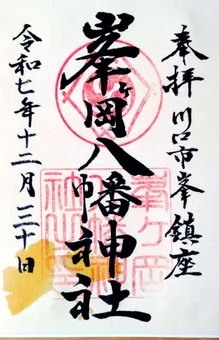 奉拝 川口市峯鎮座
峯ヶ岡八幡神社
令和七年十二月二十日